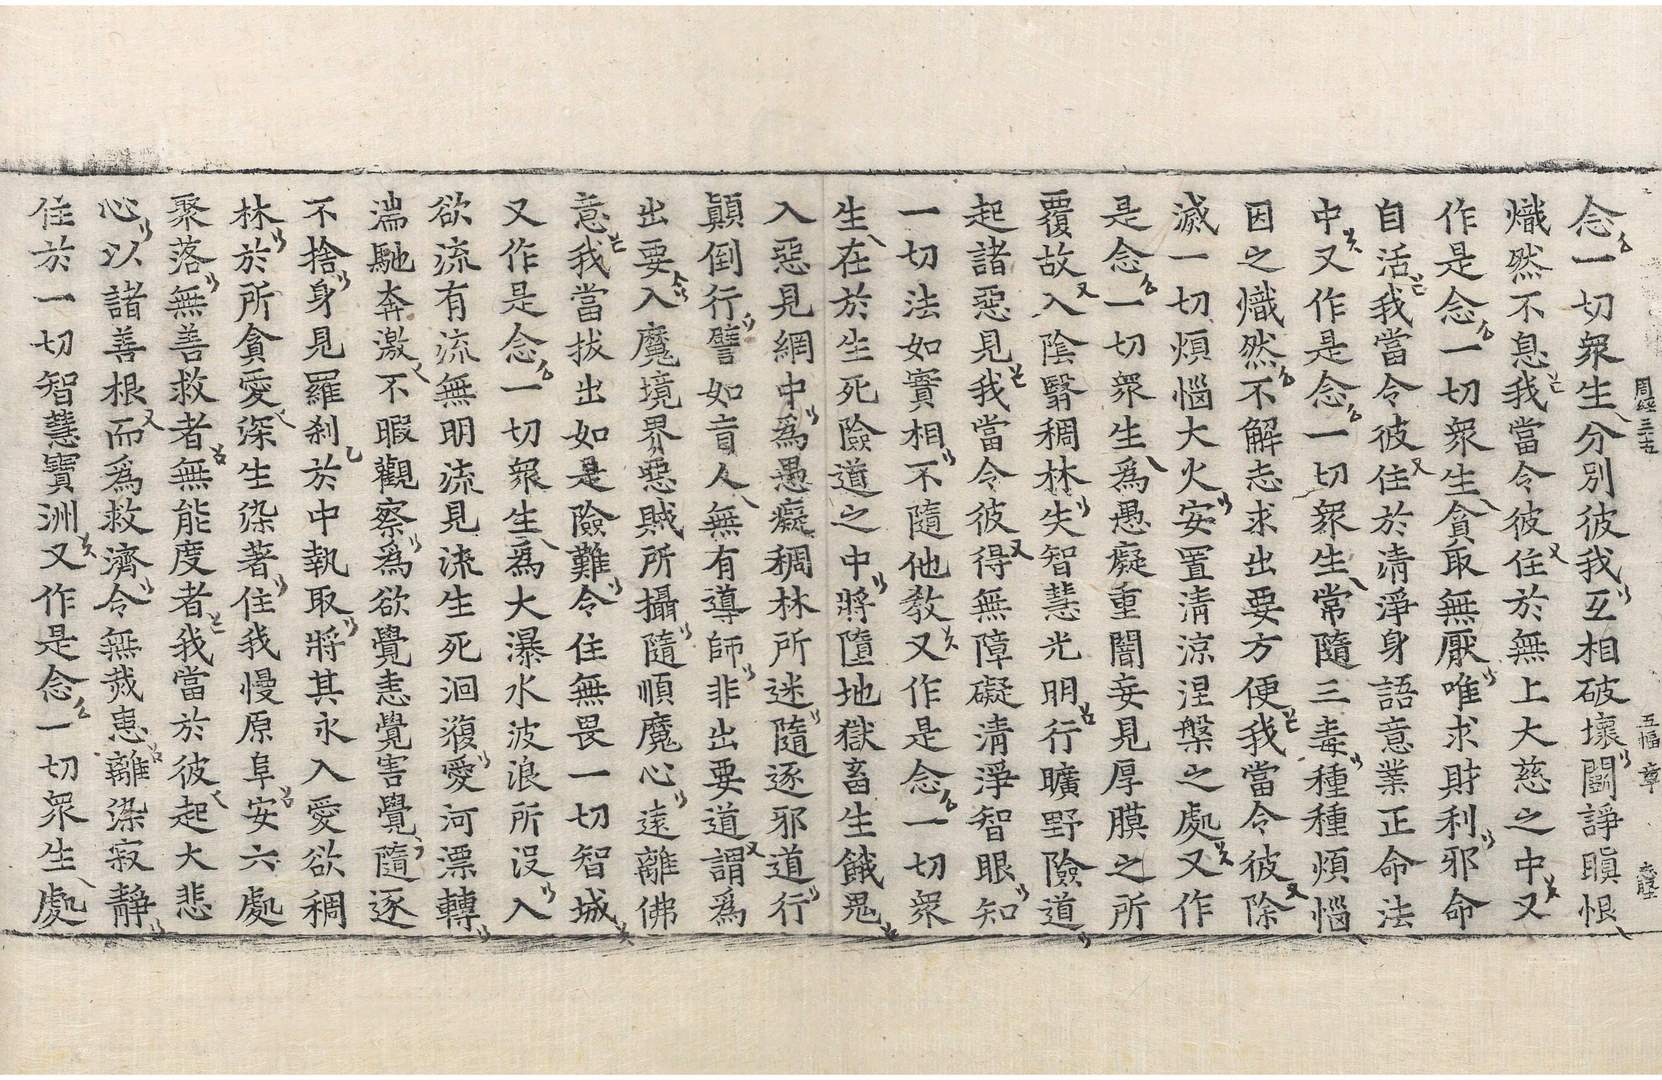 周經三十五 五幅 章
念一切衆生分別彼我互相破壞鬬諍瞋恨
熾然不息我當令彼住於無上大慈之中又
作是念一切衆生貪取無厭唯求財利邪命
自活我當令彼住於淸淨身語意業正命法
中又作是念一切衆生常隨三毒種種煩惱
因之熾然不解志求出要方便我當令彼除
滅一切煩惱大火安置淸涼涅槃之處又作
是念一切衆生爲愚癡重闇妄見厚膜之所
覆故入陰翳稠林失智慧光明行曠野險道
起諸惡見我當令彼得無障礙淸淨智眼知
一切法如實相不隨他敎又作是念一切衆
生在於生死險道之中將墮地獄畜生餓鬼
入惡見網中爲愚癡稠林所迷隨逐邪道行
顚倒行譬如盲人無有導師非出要道謂爲
出要入魔境界惡賊所攝隨順魔心遠離佛
意我當拔出如是險難令住無畏一切智城
又作是念一切衆生爲大瀑水波浪所沒入
欲流有流無明流見流生死洄澓愛河漂轉
湍馳奔激不暇觀察爲欲覺恚覺害覺隨逐
不捨身見羅刹於中執取將其永入愛欲稠
林於所貪愛深生染著住我慢原阜安六處
聚落無善救者無能度者我當於彼起大悲
心以諸善根而爲救濟令無災患離染寂靜
住於一切智慧寶洲又作是念一切衆生處